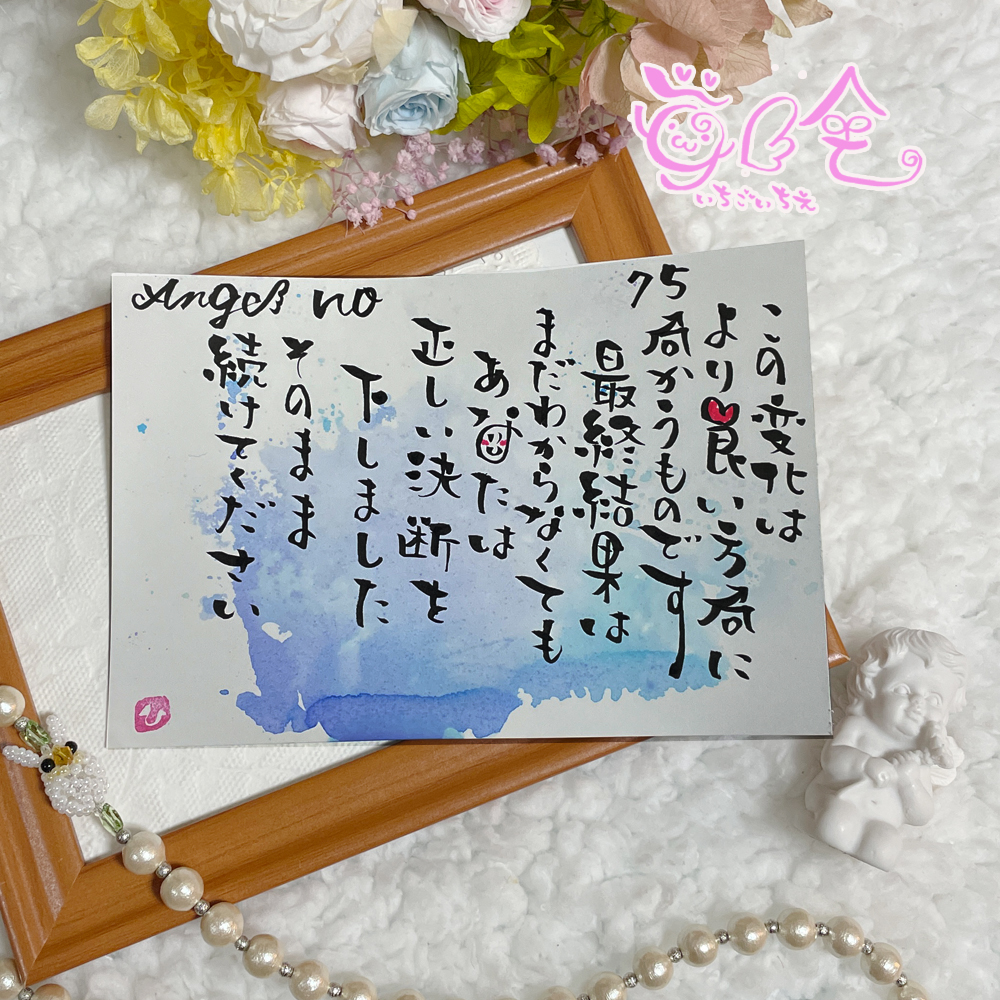 Angel no
75
この変化は
より良い方向に
向かうものです
最終結果は
まだわからなくても
あなたは
正しい決断を
下しました
そのまま
続けてください
いちごいちえ